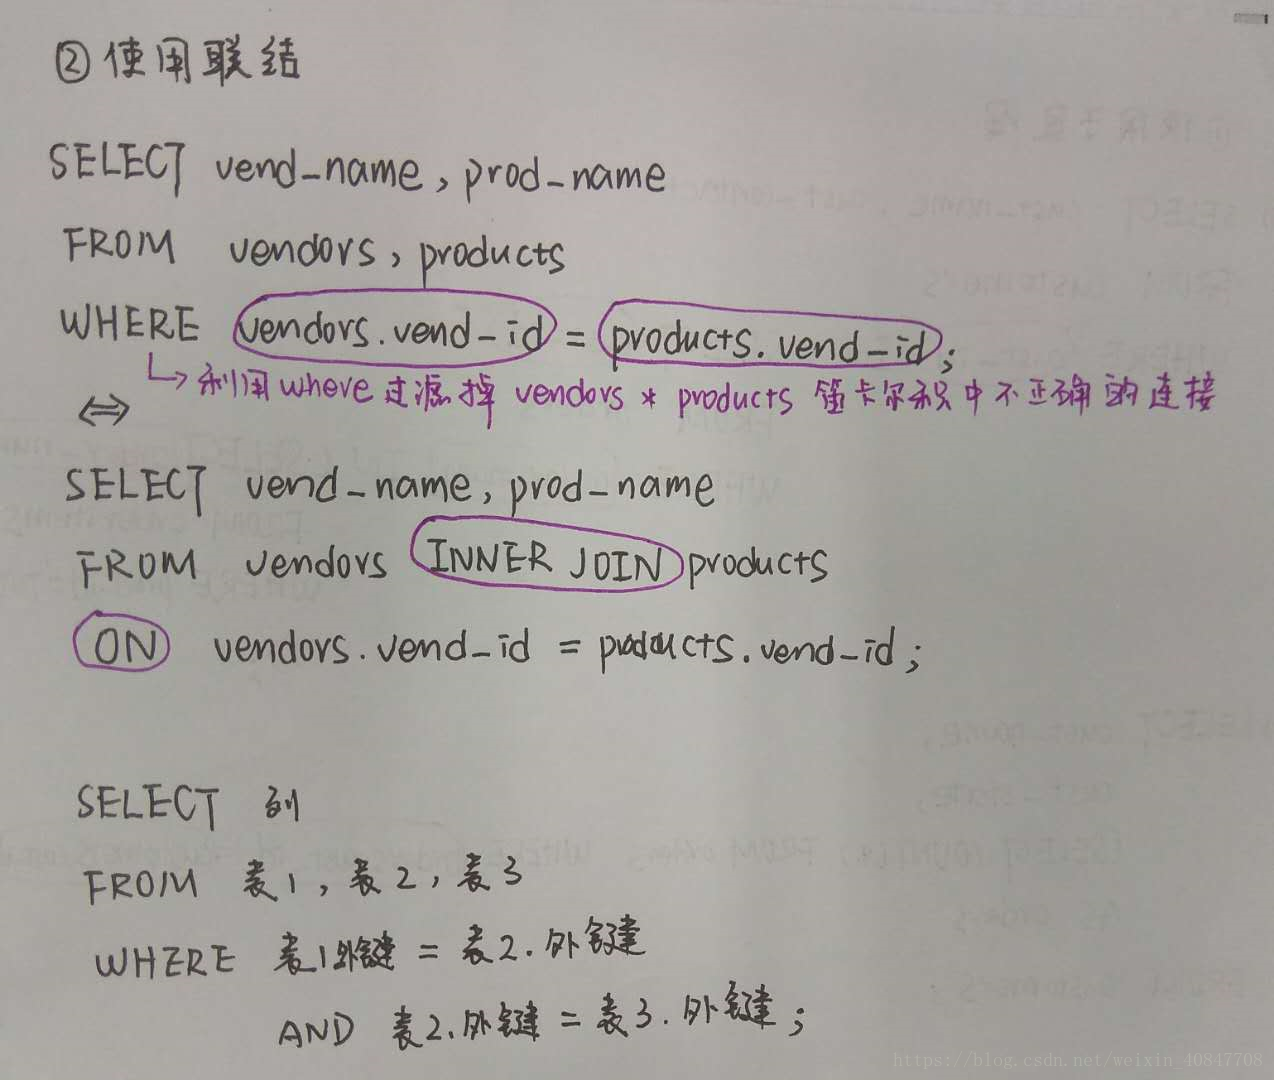 ②使用联结
SELECT vend_name, prod_name
FROM vendors, products
WHERE vendors.vend_id = products.vend_id;
↳利用where过滤掉 vendors * products 笛卡尔积中不正确的连接
⇔
SELECT vend_name, prod_name
FROM vendors INNER JOIN products
ON vendors.vend_id = products.vend_id;
SELECT 列
FROM 表1, 表2, 表3
WHERE 表1外键 = 表2.外键
AND 表2.外键 = 表3.外键;
https://blog.csdn.net/weixin_40847708